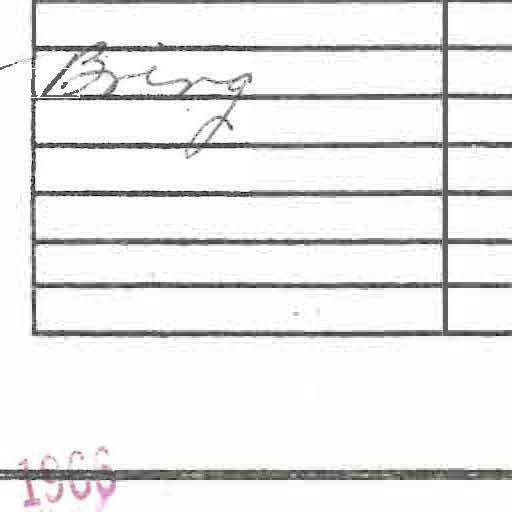 Bring
1966